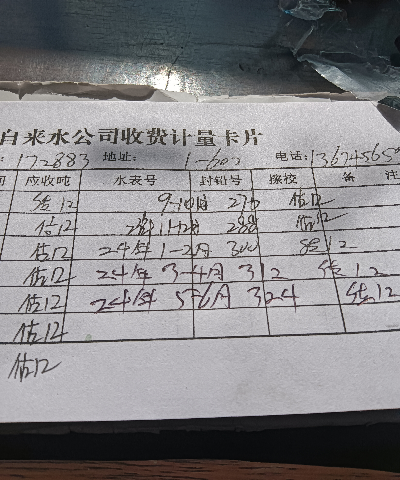 自来水公司收费计量卡片
: 172883 地址: 1-602 电话: 1367456505
应收吨 水表号 封铅号 换校 备 注
估12 9-10月 276 估12
估12 11-12月 288 估12
估12 24年1-2月 300 估12
估12 24年 3-4月 312 估12
估12 24年 5-6月 324 估12
估12
估12